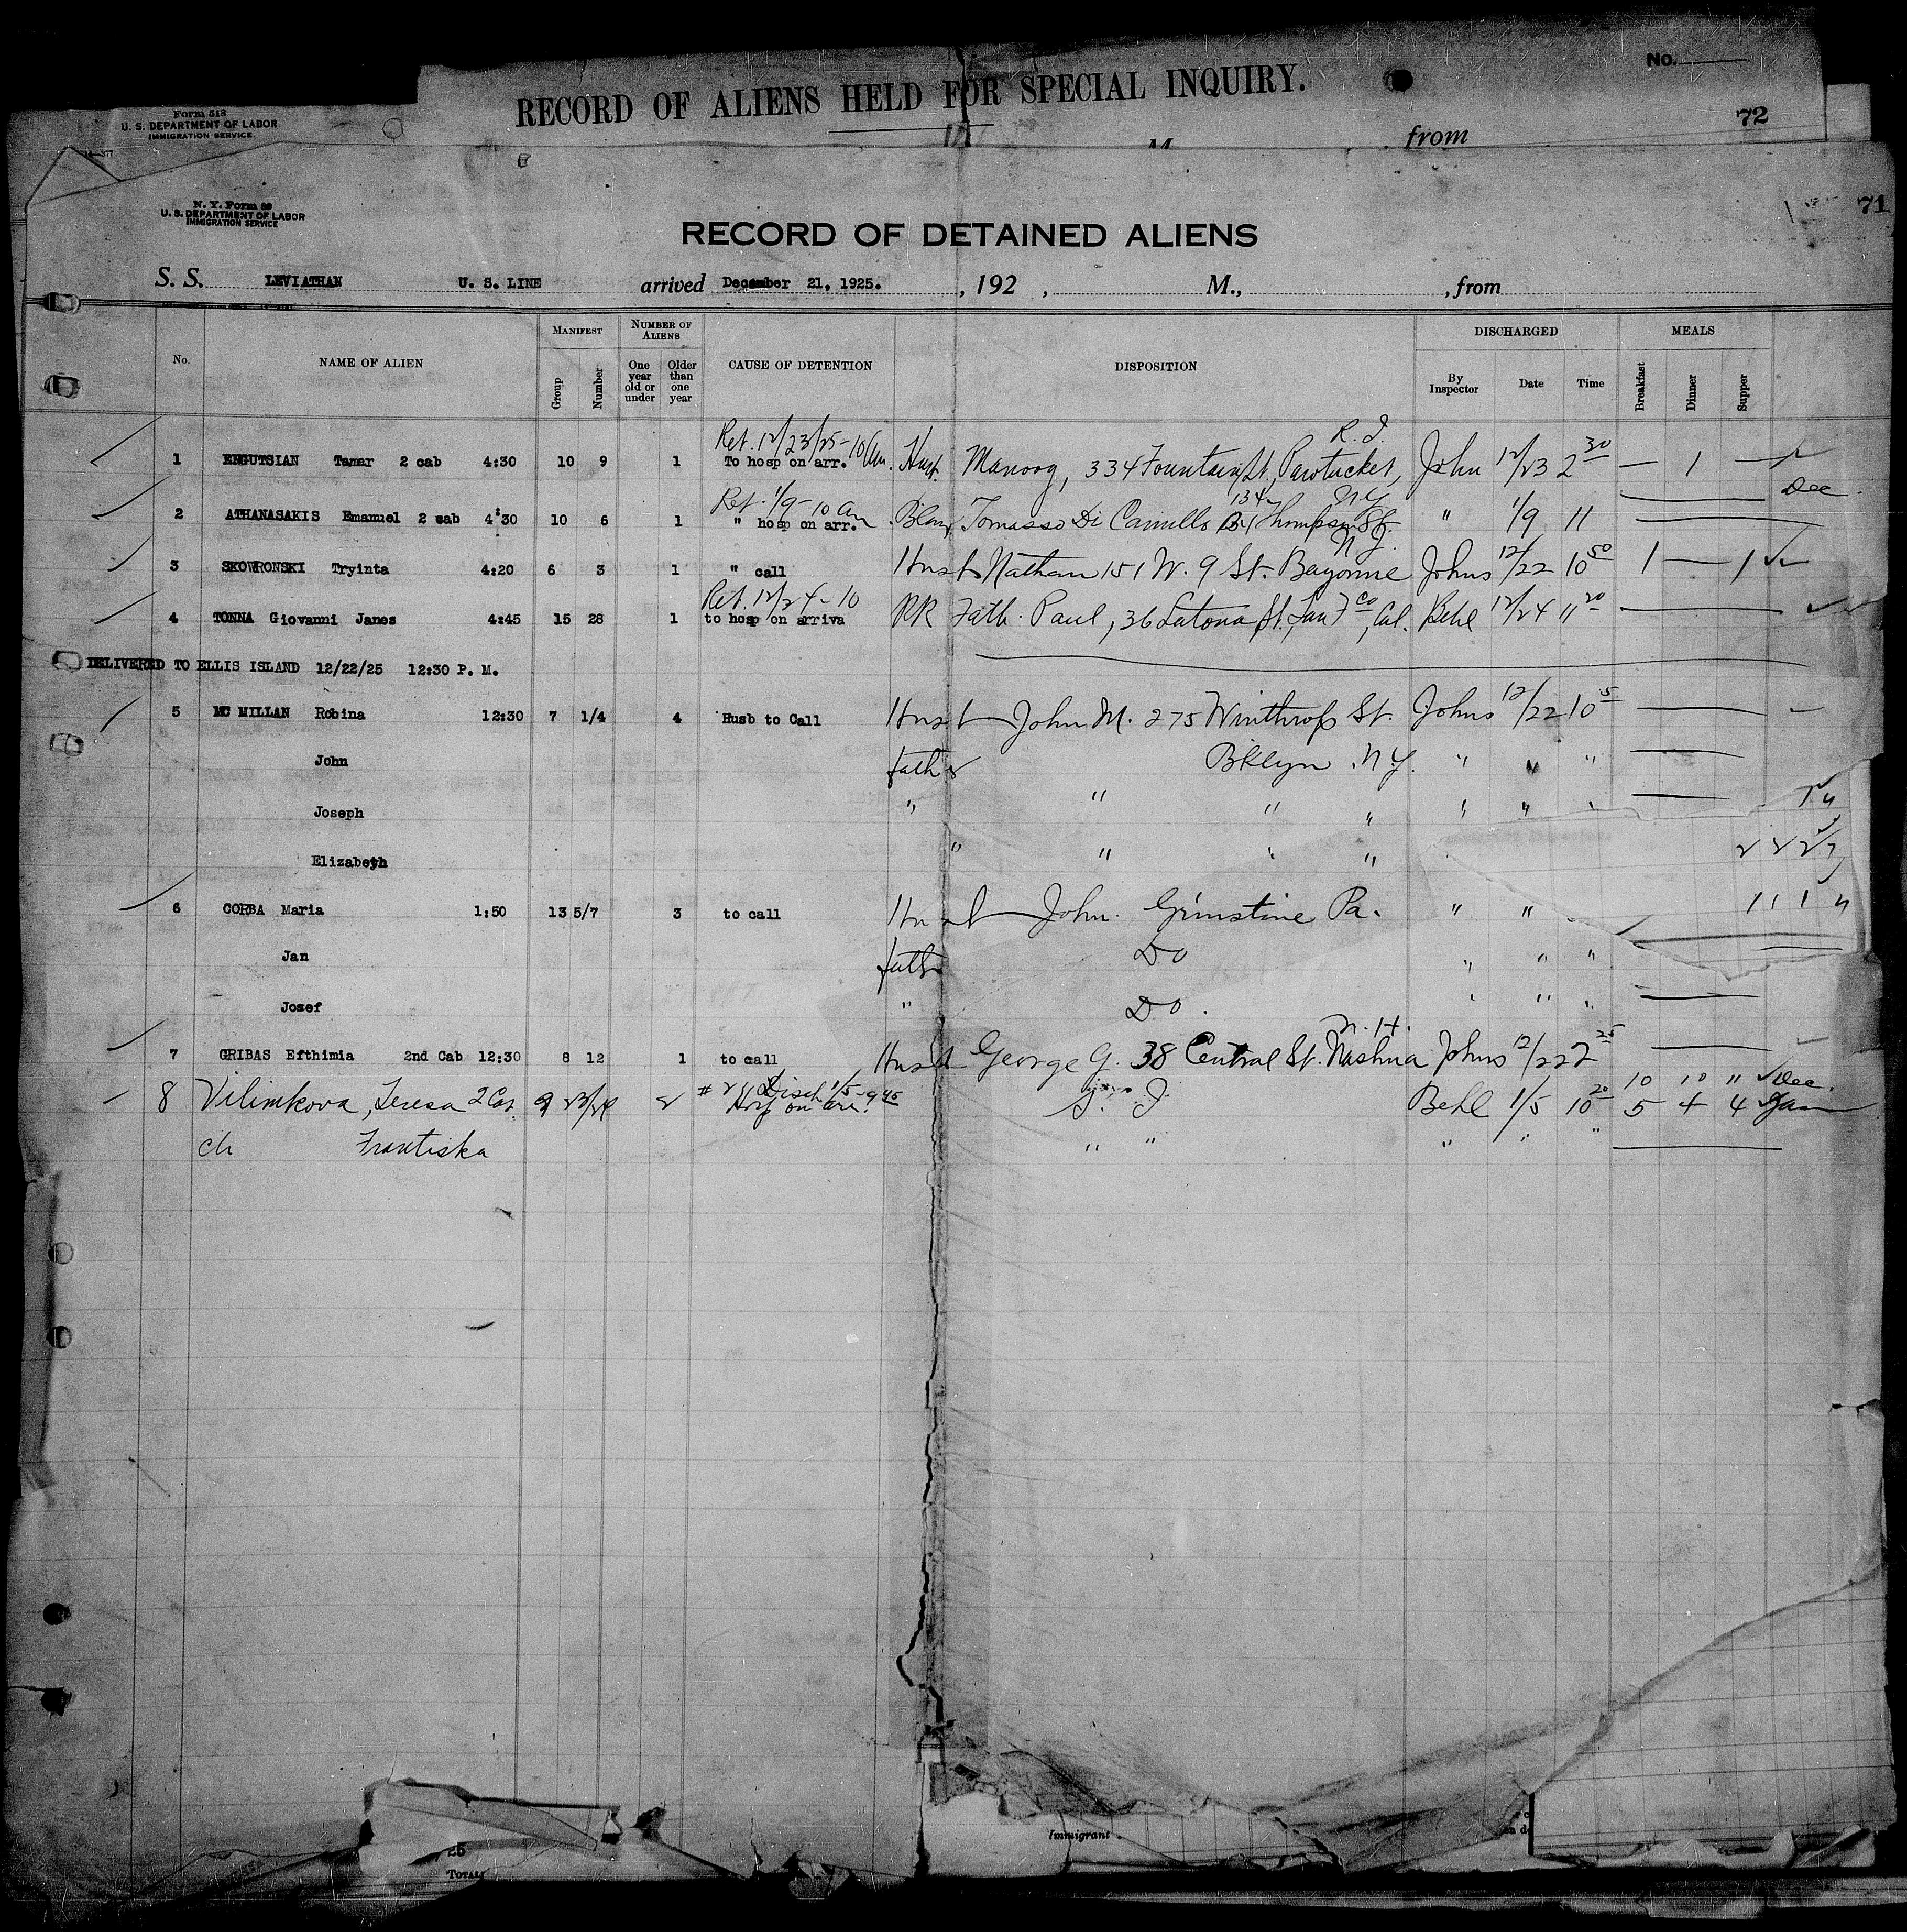 No.
RECORD OF ALIENS HELD FOR SPECIAL INQUIRY.
Form 518
U. S. DEPARTMENT OF LABOR
IMMIGRATION SERVICE
72
from
71
N. Y. Form 89
U. S. DEPARTMENT OF LABOR
IMMIGRATION SERVICE
RECORD OF DETAINED ALIENS
S. S. LEVIATHAN U. S. LINE arrived December 21, 1925. , 192 , M., , from
MANIFEST NUMBER OF ALIENS DISCHARGED MEALS
No. NAME OF ALIEN Group Number One year old or under Older than one year CAUSE OF DETENTION DISPOSITION By Inspector Date Time Breakfast Dinner Supper
Ret. 12/23/25-10 am. R. I.
1 ENGUTSIAN Tamar 2 cab 4:30 10 9 1 To hosp on arr. Husb. Manoog, 334 Fountain St, Pawtucket, John 12/23 2 30 — 1 —
Dec.
Ret. 1/9-10 am 134 N Y
2 ATHANASAKIS Emanuel 2 cab 4:30 10 6 1 " hosp on arr. Tomasso Di Camillo Thompson St. " 1/9 11
N. J.
3 SKOWRONSKI Tryinta 4:20 6 3 1 " call Husb Nathan 151 W. 9 St. Bayonne Johns 12/22 10 50 1 — 1
Ret. 12/24-10
4 TONNA Giovanni Janes 4:45 15 28 1 to hosp on arriva RR Fath. Paul, 36 Latona St., San Fco, Cal. Behl 12/24 11 20
DELIVERED TO ELLIS ISLAND 12/22/25 12:30 P. M.
5 MC MILLAN Robina 12:30 7 1/4 4 Husb to Call Husb John M. 275 Winthrop St. Johns 12/22 10 5
John father Bklyn N.Y. " " "
Joseph " " " " " "
Elizabeth " " " "
6 CORBA Maria 1:50 13 5/7 3 to call Husb John. Grinstine Pa. " " 1 1 1
Jan father Do " " "
Josef " Do. " " "
N. H.
7 GRIBAS Efthimia 2nd Cab 12:30 8 12 1 to call Husb George G. 38 Central St. Nashua Johns 12/22 2 25
10 10 11 Dec.
8 Vilimkova, Teresa 2 Cab 9 23/24 2 Disch 1/5-9 45 Hosp on arr. Behl 1/5 10 20 5 4 4 Jan
ch Frantiska " " " " "
Immigrant
25
TOTAL